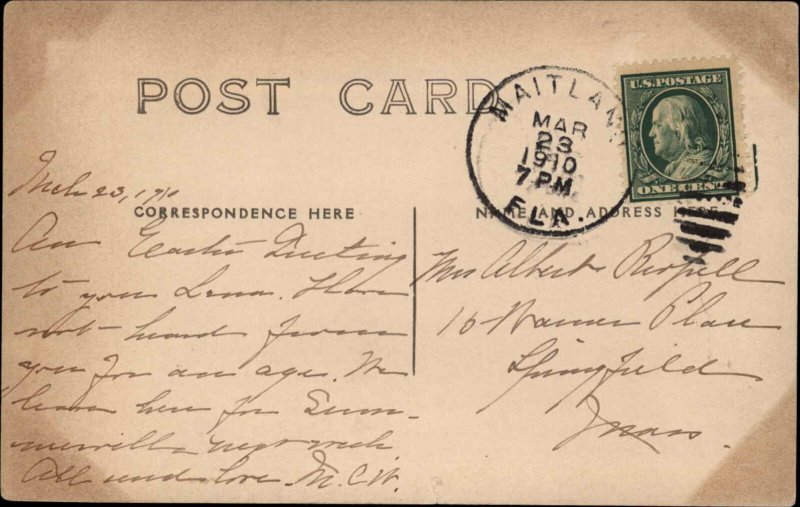 POST CARD
MAITLAN
MAR
23
1910
7 PM
FLA.
U.S. POSTAGE
ONE CENT
Mch 23, 1910
CORRESPONDENCE HERE
An Easter Greeting
to you Lena. Have
not heard from
you for an age. We
leave here for Sum-
merville next week
All send love. M.C.W.
NAME AND ADDRESS HERE
Mrs Albert
16 Place
Springfield
Mass.